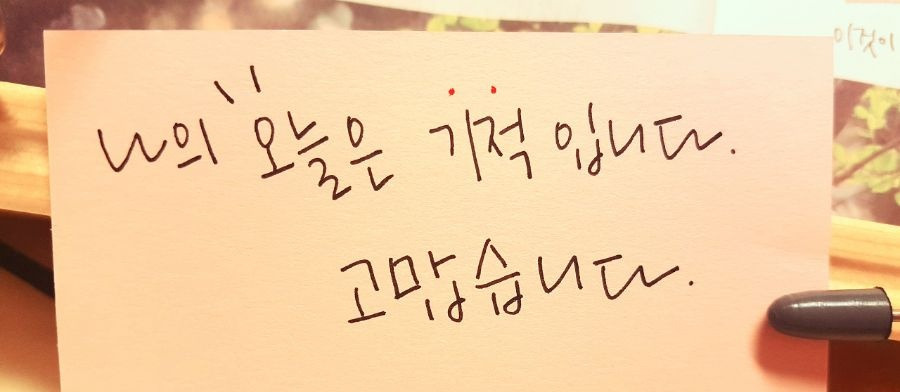 이것이
나의 오늘은 기적입니다.
고맙습니다.